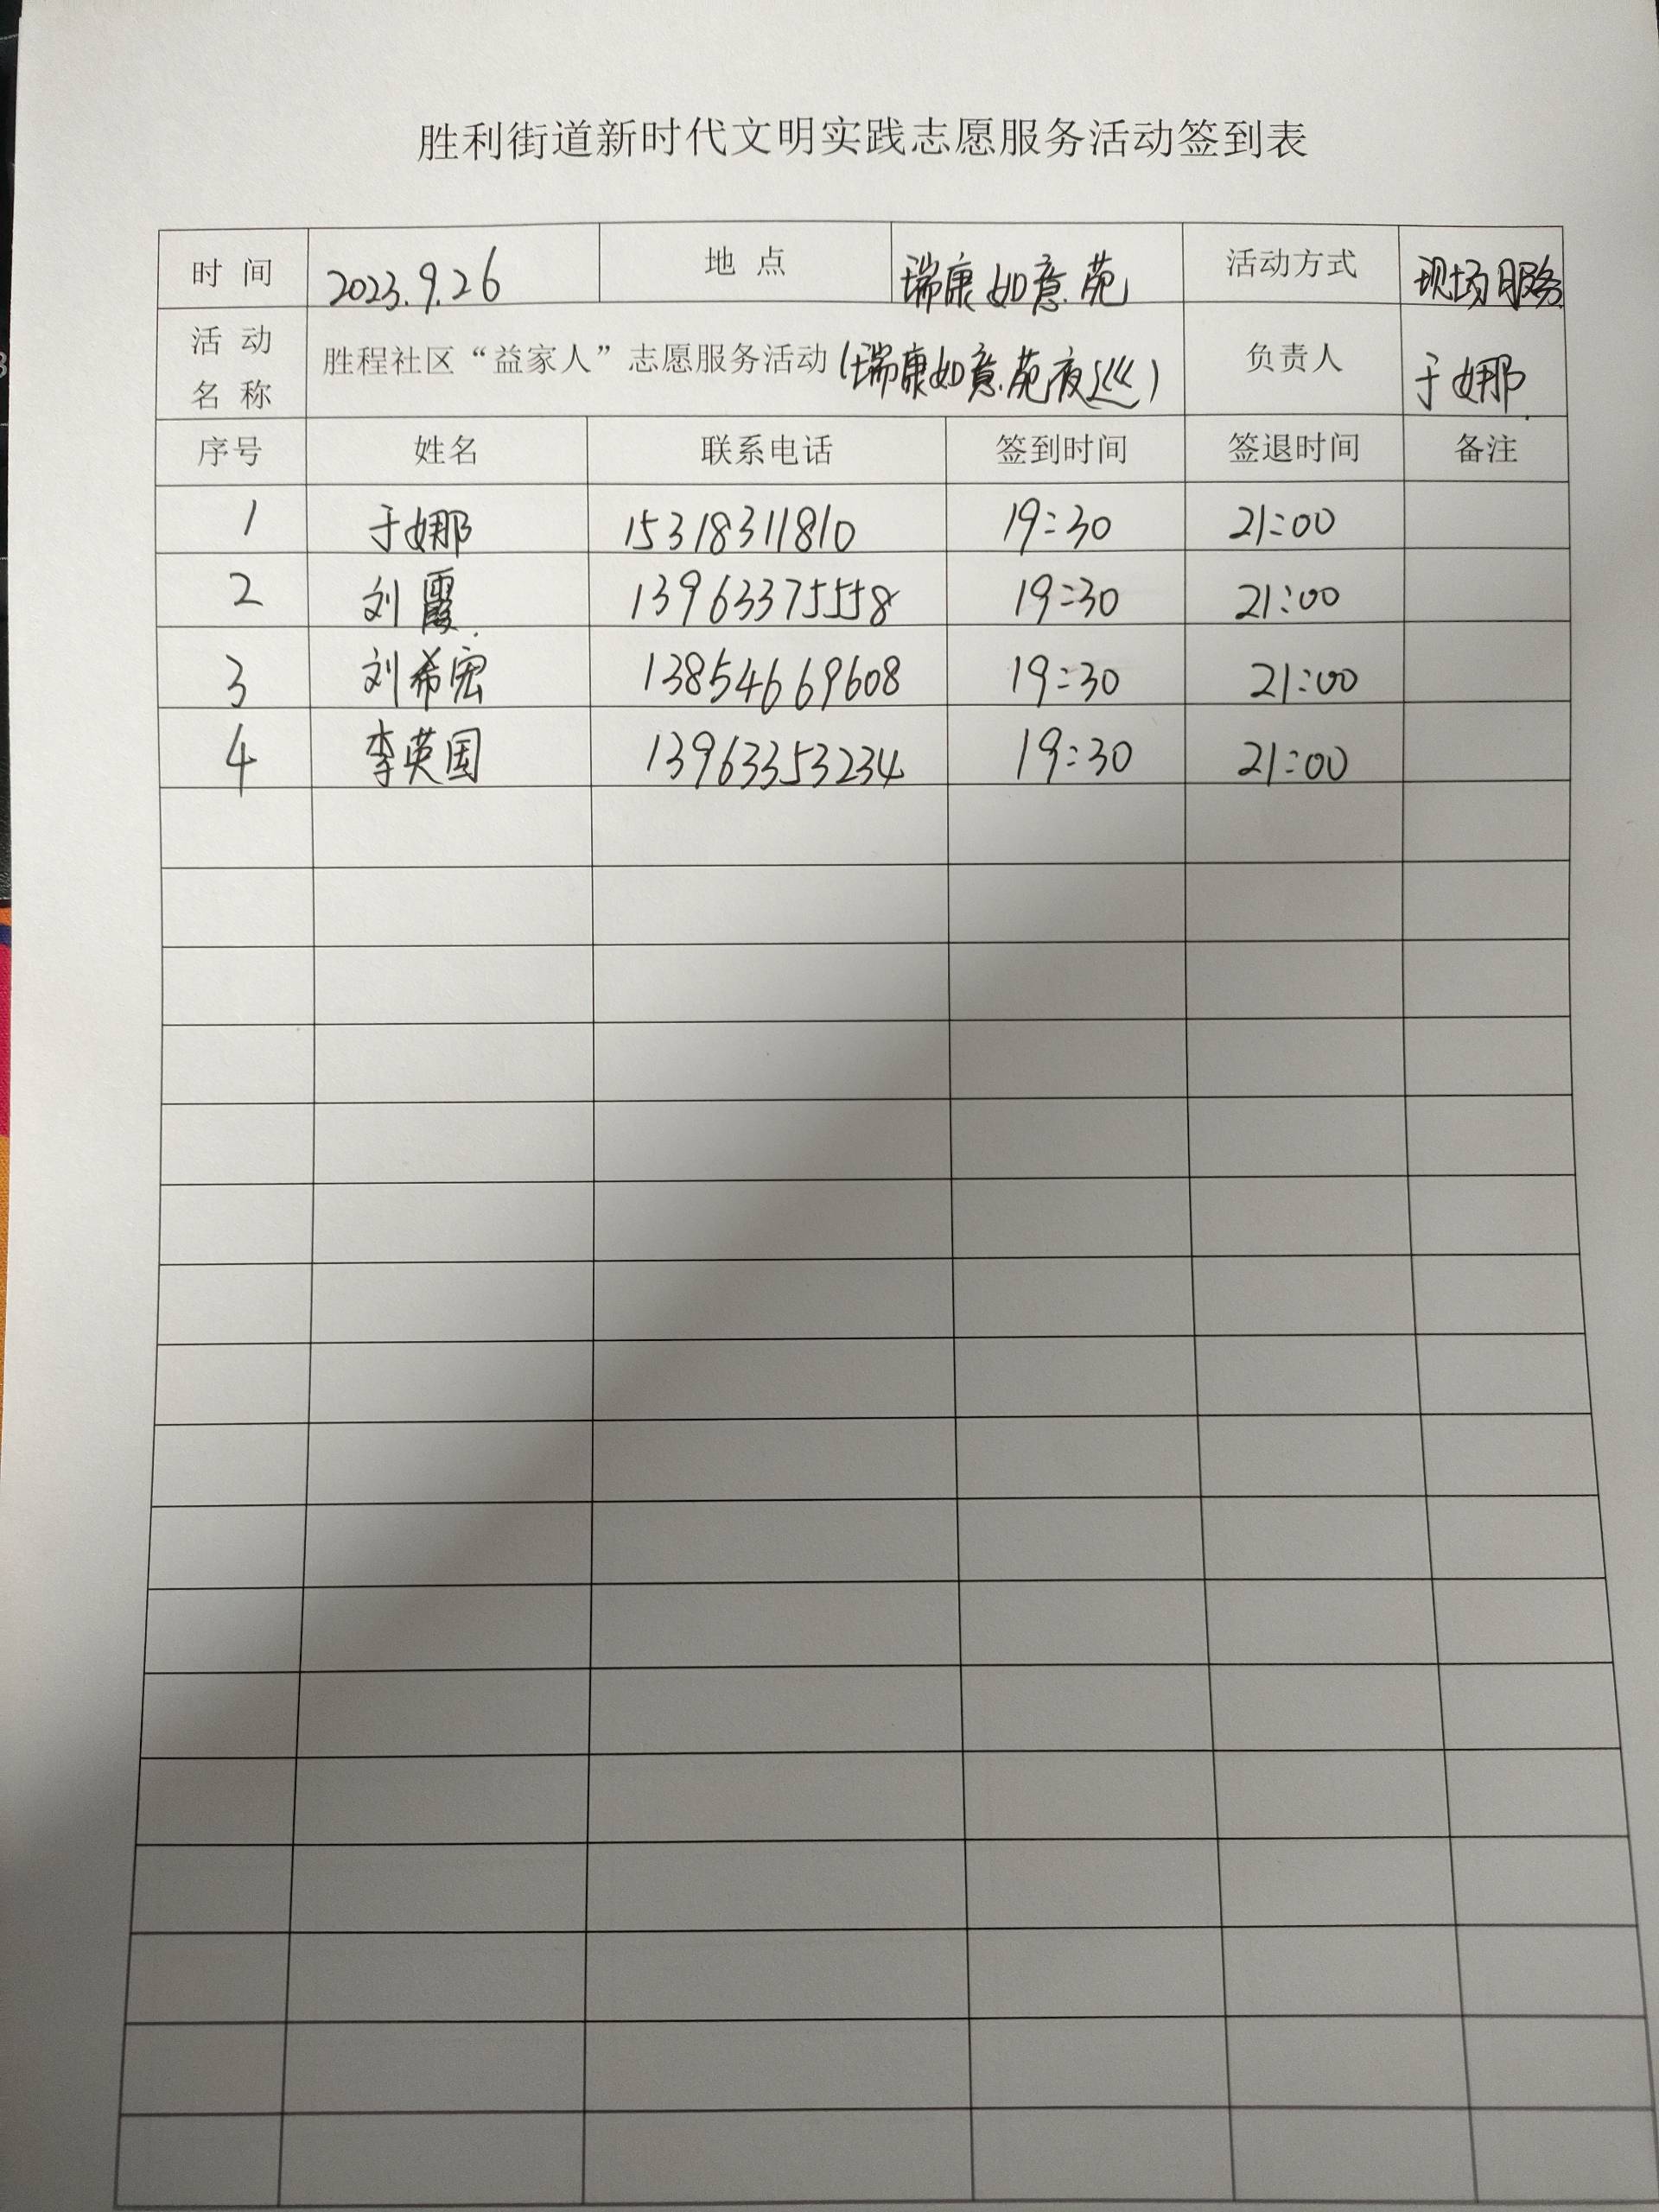 胜利街道新时代文明实践志愿服务活动签到表
时 间 2023.9.26 地 点 瑞康如意苑 活动方式 现场服务
活 动 名 称 胜程社区“益家人”志愿服务活动(瑞康如意苑夜巡) 负责人 于娜
序号 姓名 联系电话 签到时间 签退时间 备注
1 于娜 15318311810 19:30 21:00
2 刘霞 13963375558 19:30 21:00
3 刘希宏 13854669608 19:30 21:00
4 李英国 13963353234 19:30 21:00